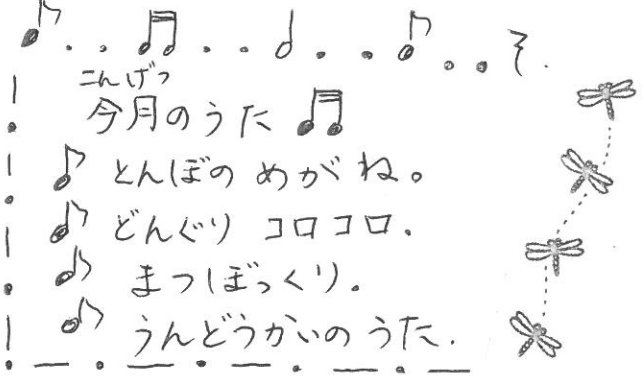 こんげつ
今月のうた
とんぼの めがね。
どんぐり コロコロ.
まつぼっくり。
うんどうかいの うた.